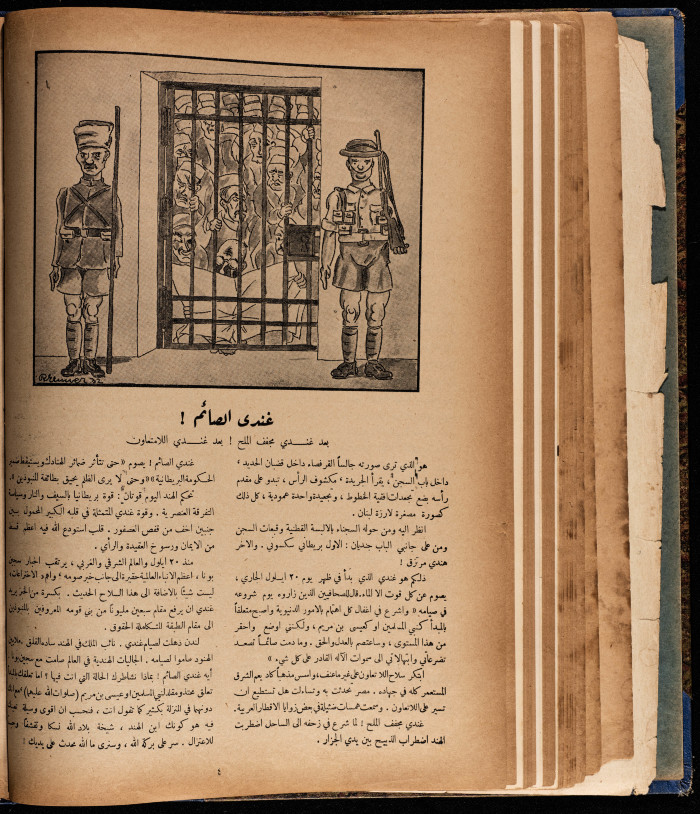 غندى الصائم !
بعد غنـــدي مجفف الملح ! بعد غنـــدي اللامتعاون
هو الذي ترى صورته جالساً القرفصاء داخل قضبان الحديد ،
داخل باب السجن ، يقرأ الجريدة ، مكشوف الرأس ، تبدو على مقدم
رأسه بضع تجعدات افقية الخطوط ، وتجعيدة واحدة عمودية ، كل ذلك
كصورة مصغرة لارزة لبنان .
انظر اليه ومن حوله السجناء بالالبسة القطنية وقبعات السجن
ومن على جانبي الباب جنديان : الاول بريطاني سكسوني . والاخر
هندي مرتزق !
ذلكم هو غندي الذي بدأ في ظهر يوم ٢٠ ايلول الجاري ،
يصوم عن كل قوت الا الماء . قال للصحافيين الذين زاروه يوم شروعه
في صيامه « واشرع في اغفال كل اهتمام بالامور الدنيوية واصبح متعلقاً
بالمبدأ كنبي المسلمين او كعيسى بن مريم ، ولكنني اوضع واحقر
من هذا المستوى ، وساعتصم بالعدل والحق . وما دمت صائماً تصعد
تضرعاتي وابتهالاتي الى سموات الآله القادر على كل شيء »
ابتكر سلاح اللاتعاون على غير ما عنف ، واسس مذهباً كاد يعم الشرق
المستعمر كله في جهاده . مصر تحدثت به وتساءلت هل تستطيع ان
تسير على اللاتعاون . وسمعت همسات ضئيلة في بعض زوايا الاقطار العربية .
غندي مجفف الملح ! لما شرع في زحفه الى الساحل اضطربت
الهند اضطراب الذبيح بين يدي الجزار .
غندي الصائم ! يصوم « حتى تتأثر ضمائر الهنادك ويستيقظ ضمير
الحكومة البريطانية » « وحتى لا يرى الظلم يحيق بطائفة المنبوذين » .
تحكم الهند اليوم قوتان : قوة بريطانيا بالسيف والنار وسياسة
التفرقة العنصرية . وقوة غندي المتمثلة في قلبه الكبير المحمول بين
جنبين اخف من قفص العصفور . قلب استودع الله فيه اعظم قسط
من الايمان ورسوخ العقيدة والرأي .
منذ ٢٠ ايلول والعالم الشرقي والغربي ، يرتقب اخبار سجين
بونا ، اعظم الانباء العالمية حقيرة الى جانب خبر صومه ، واهم الاختراعات
ليست شيئاً بالاضافة الى هذا السلاح الحديث . بكسرة من الخبز يريد
غندي ان يرفع مقام سبعين مليوناً من بني قومه المعروفين بالمنبوذين
الى مقام الطبقة المتكاملة الحقوق .
لندن دهلت لصيام غندي . نائب الملك في الهند ساده القلق . ملايين
الهنود صاموا لصيامه . الجاليات الهندية في العالم صامت مع سجين بونا .
أيه غندي الصائم ! بماذا نشاطرك الحالة التي انت فيها ؟ اما تعلقك بالمبدأ
تعلق محمد ومقلد لنبي المسلمين وعيسى بن مريم (صلوات الله عليهما) مع انك
دونهما في المنزلة بكثير كما تقول انت ، فنحسب ان اقوى وسيلة
فيه هو كونك ابن الهند ، شيخة بلاد الله نسكا وتقشفاً
للاعتزال . سر على بركة الله ، وسنرى ما الله محدث على يديك !
٤